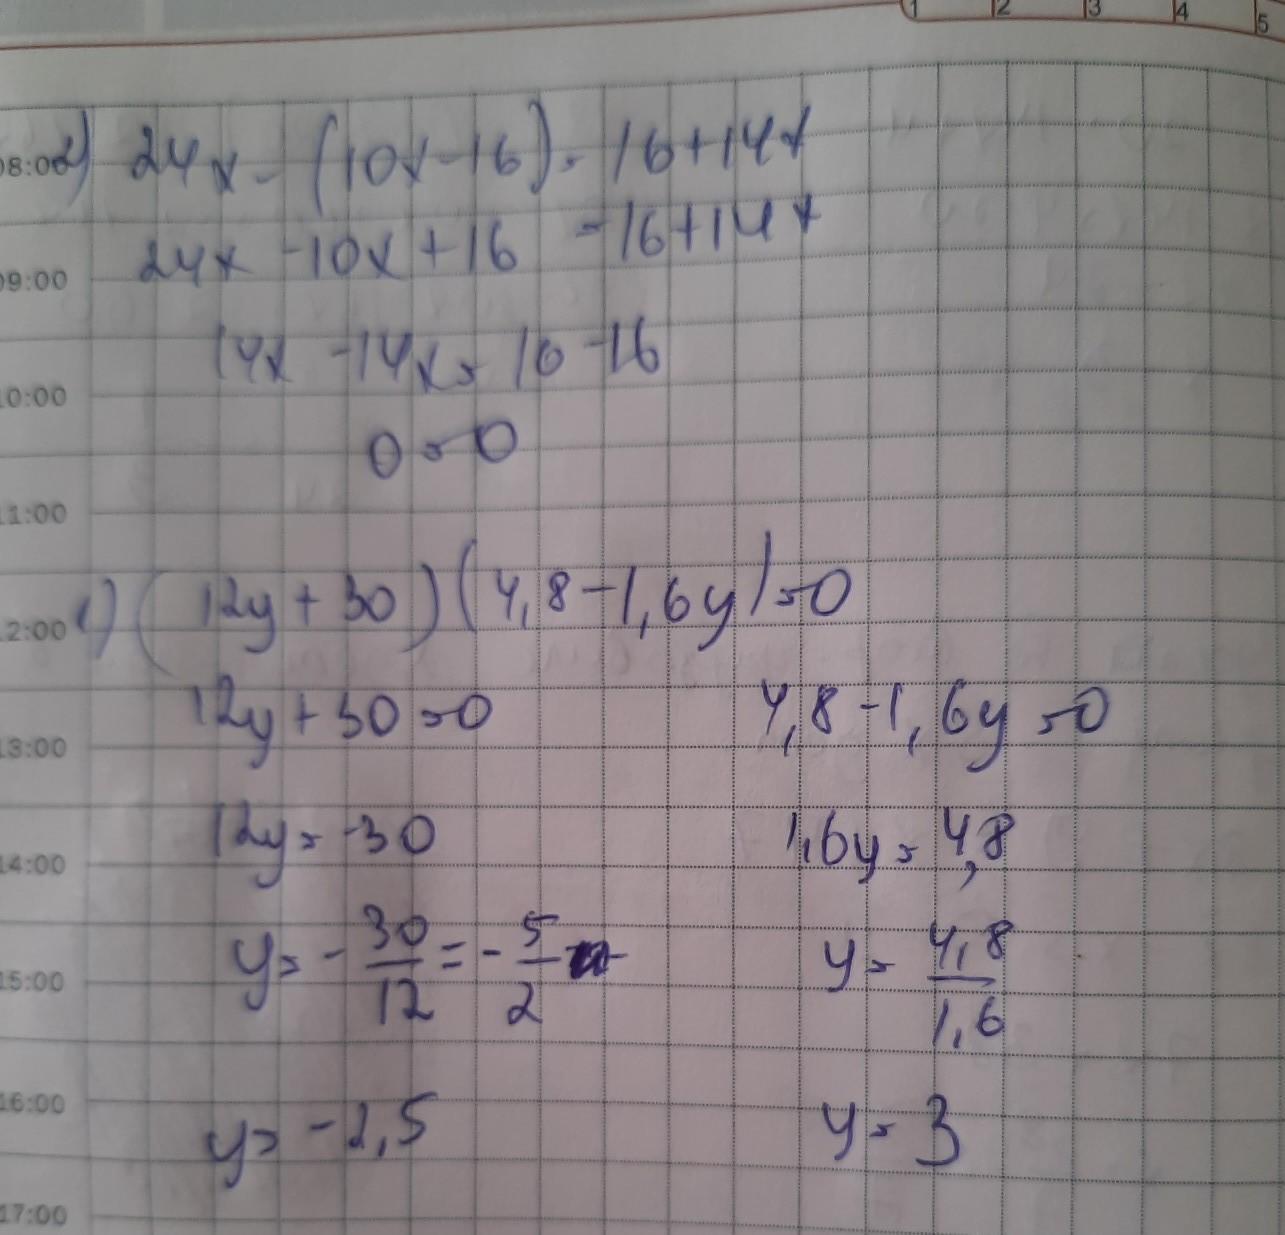 1 2 3 4 5
08:00 2) 24x - (10x - 16) = 16 + 14x
24x - 10x + 16 = 16 + 14x
09:00
14x - 14x = 16 - 16
10:00
0 = 0
11:00
1) (12y + 30) (4,8 - 1,6y) = 0
12:00
12y + 30 = 0 4,8 - 1,6y = 0
13:00
12y = -30 1,6y = 4,8
14:00
y = - 30/12 = - 5/2 y = 4,8/1,6
15:00
y = -2,5 y = 3
16:00
17:00